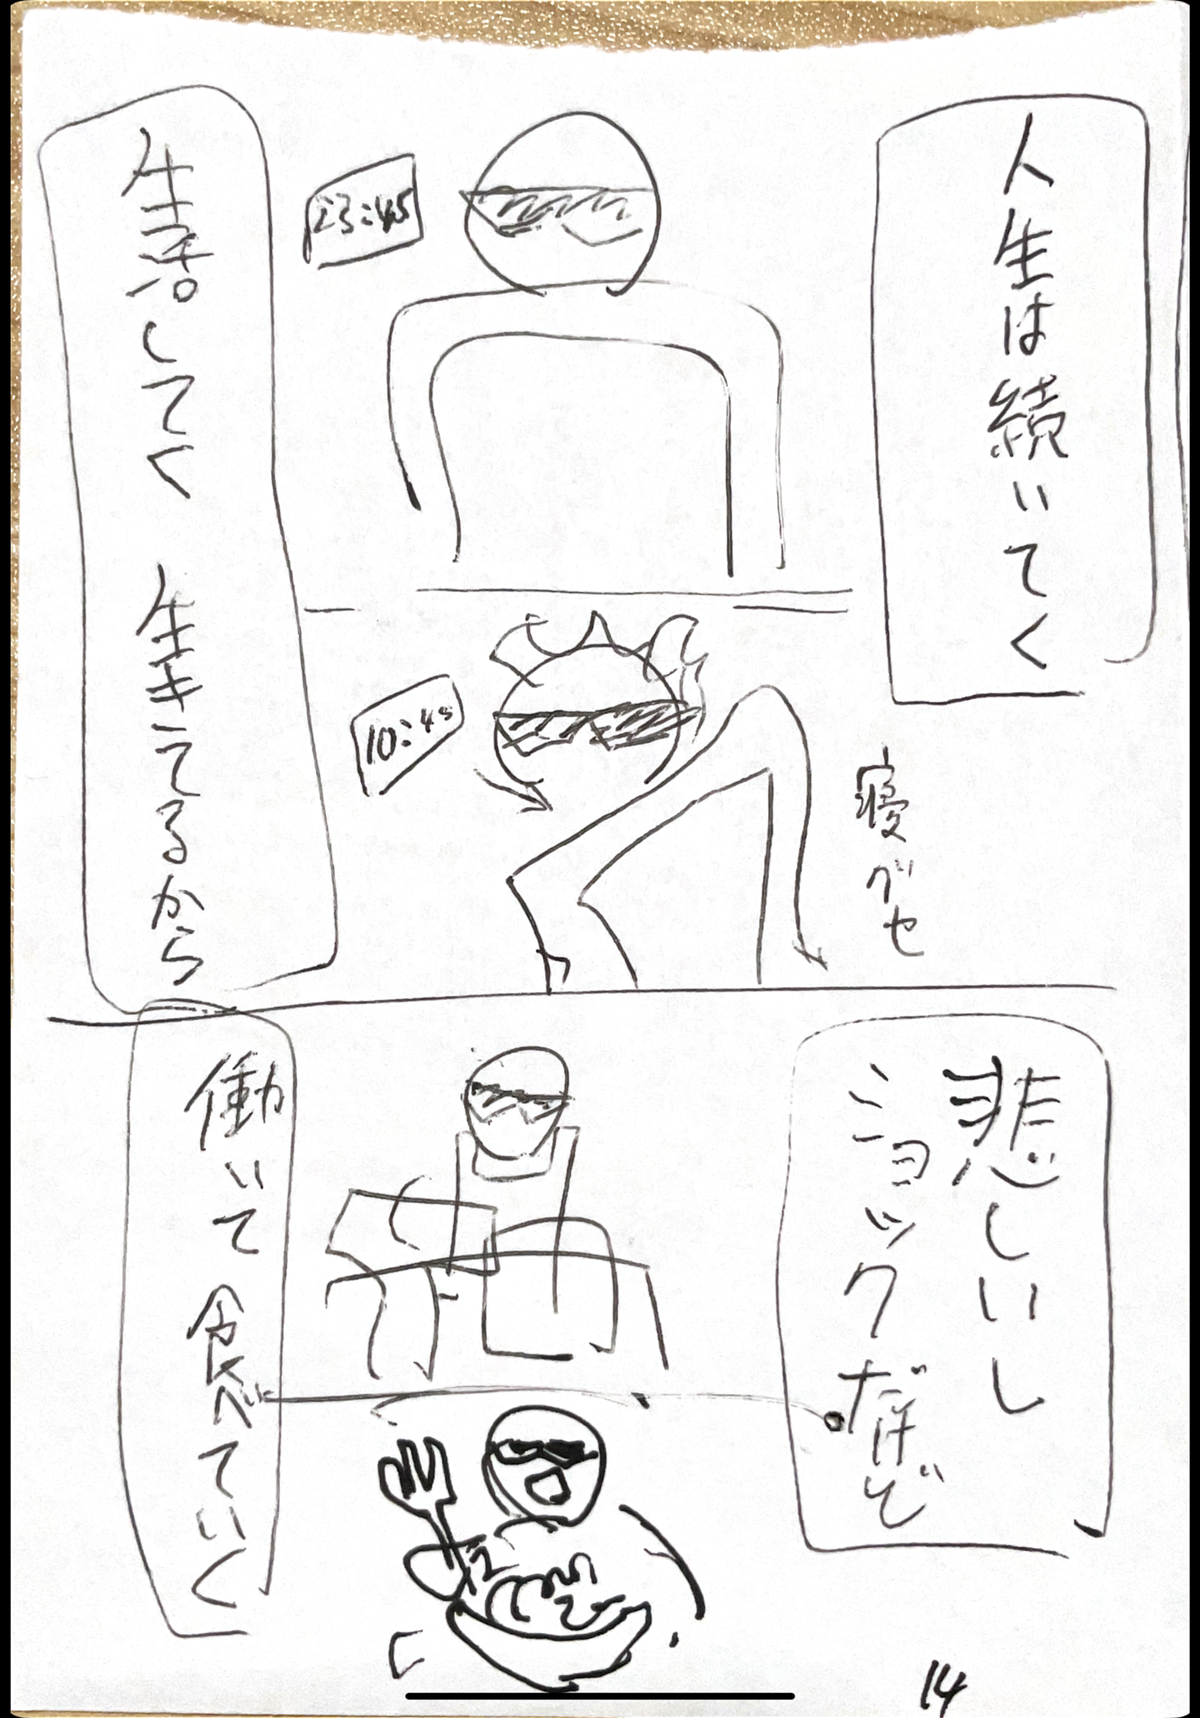 人生は続いてく
23:45
生活してく 生きてるから
寝グセ
10:45
悲しいし
ショックだけど
働いて 食べていく
14